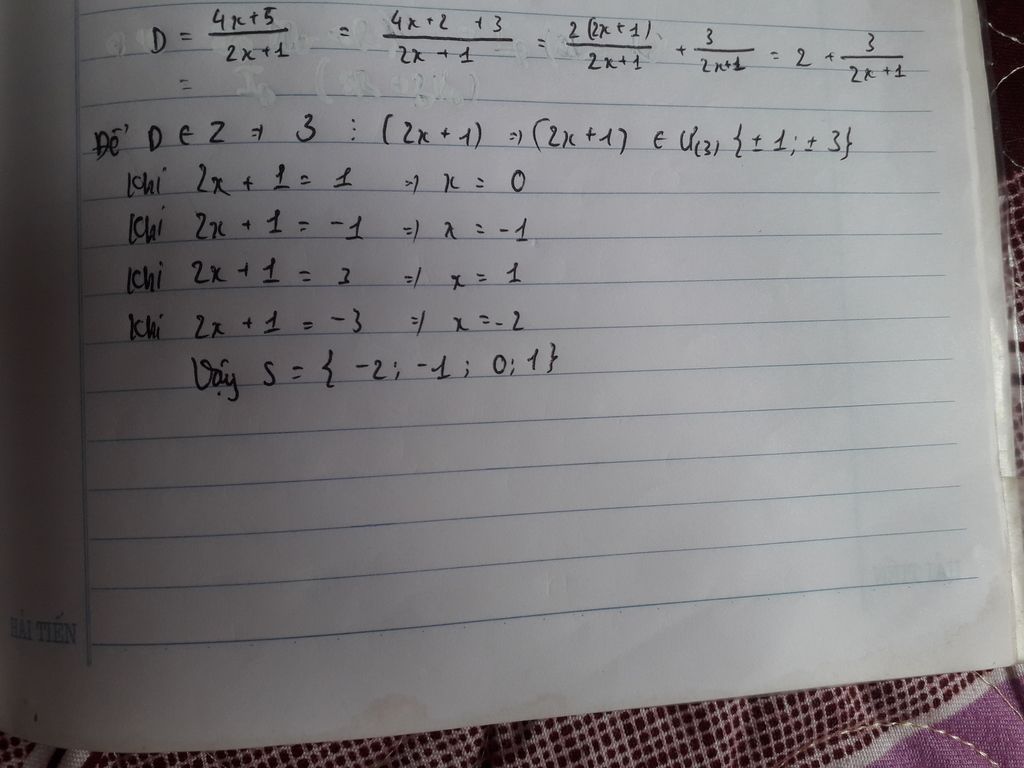 D = \frac{4x+5}{2x+1} = \frac{4x+2+3}{2x+1} = \frac{2(2x+1)}{2x+1} + \frac{3}{2x+1} = 2 + \frac{3}{2x+1}
=
Để D ∈ Z => 3 ⋮ (2x+1) => (2x+1) ∈ Ư(3) {±1; ±3}
Khi 2x + 1 = 1 => x = 0
Khi 2x + 1 = -1 => x = -1
Khi 2x + 1 = 3 => x = 1
Khi 2x + 1 = -3 => x = -2
Vậy S = { -2; -1; 0; 1}
HẢI TIẾN